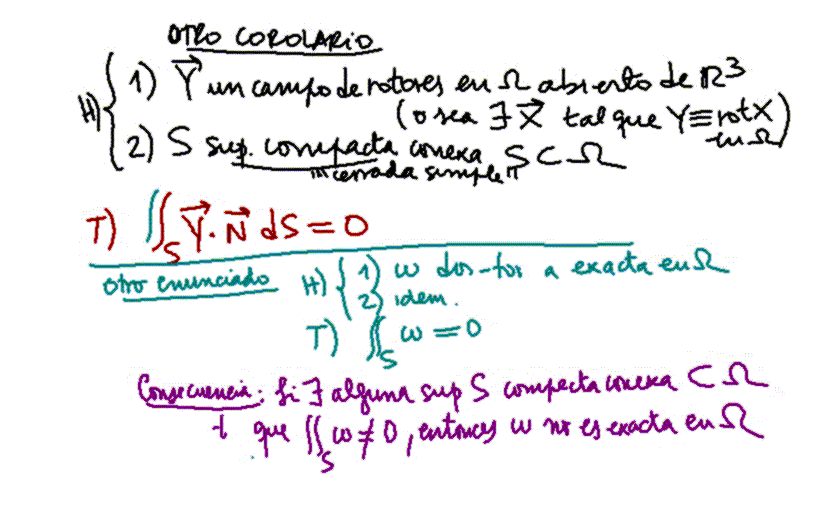 OTRO COROLARIO
H) { 1) Y⃗ un campo de rotores en Ω abierto de ℝ³
(o sea ∃ X⃗ tal que Y≡rotX en Ω)
2) S sup. compacta conexa S⊂Ω
"cerrada simple"
T) ∬_S Y⃗·N⃗ dS = 0
Otro enunciado H) { 1) ω dos-for a exacta en Ω
2) idem.
T) ∬_S ω = 0
Consecuencia: Si ∃ alguna sup S compacta conexa ⊂ Ω
t que ∬_S ω ≠ 0, entonces ω no es exacta en Ω